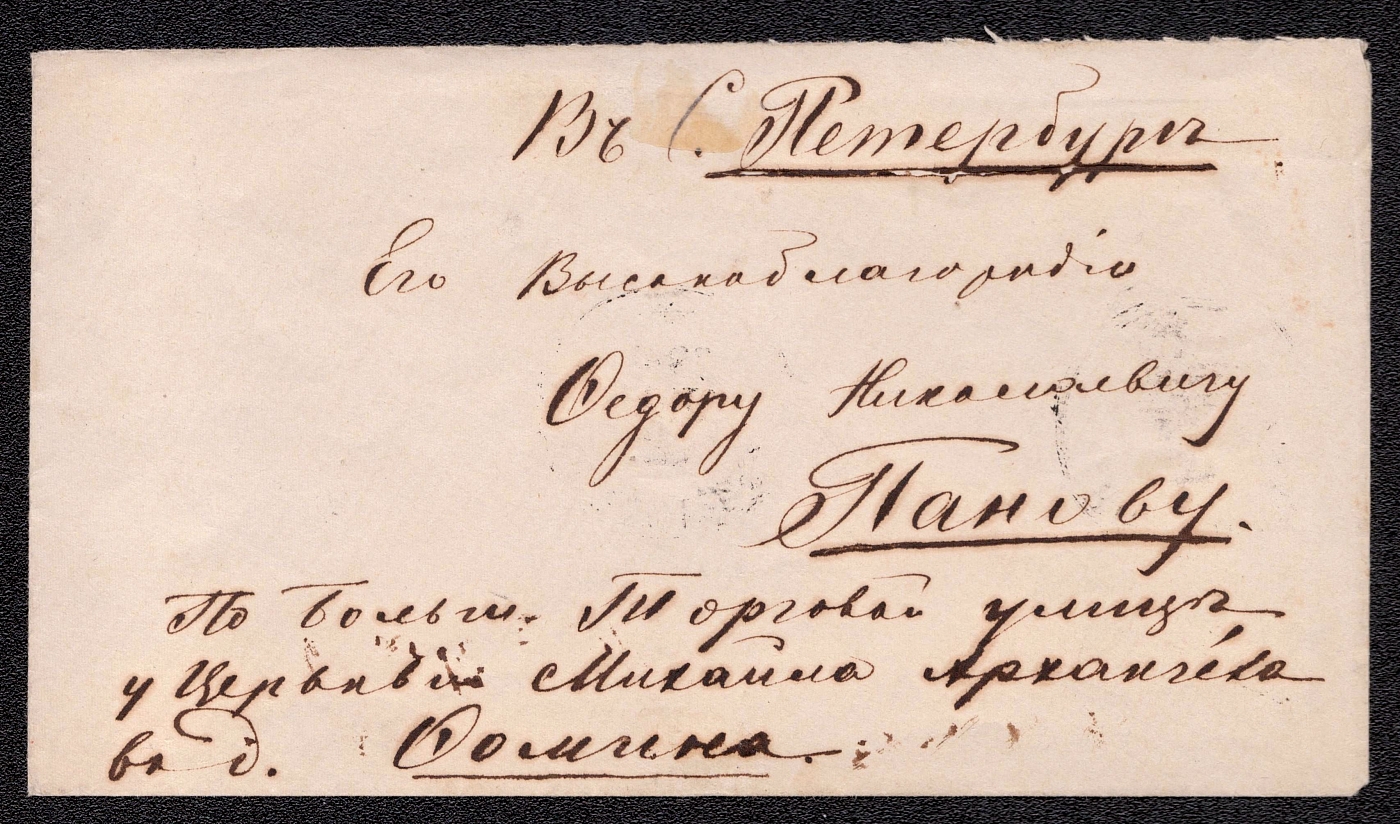 Въ С. Петербургъ
Его Высокоблагородію
Ѳедору Николаевичу
Панову.
По Больш. Торговой улицѣ
у Церькви Михаила Архангела
въ д. Ѳомина.